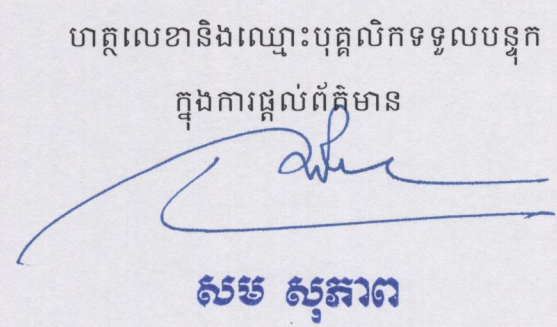 ហត្ថលេខានិងឈ្មោះបុគ្គលិកទទួលបន្ទុក
ក្នុងការផ្តល់ព័ត៌មាន
សម សុភាព